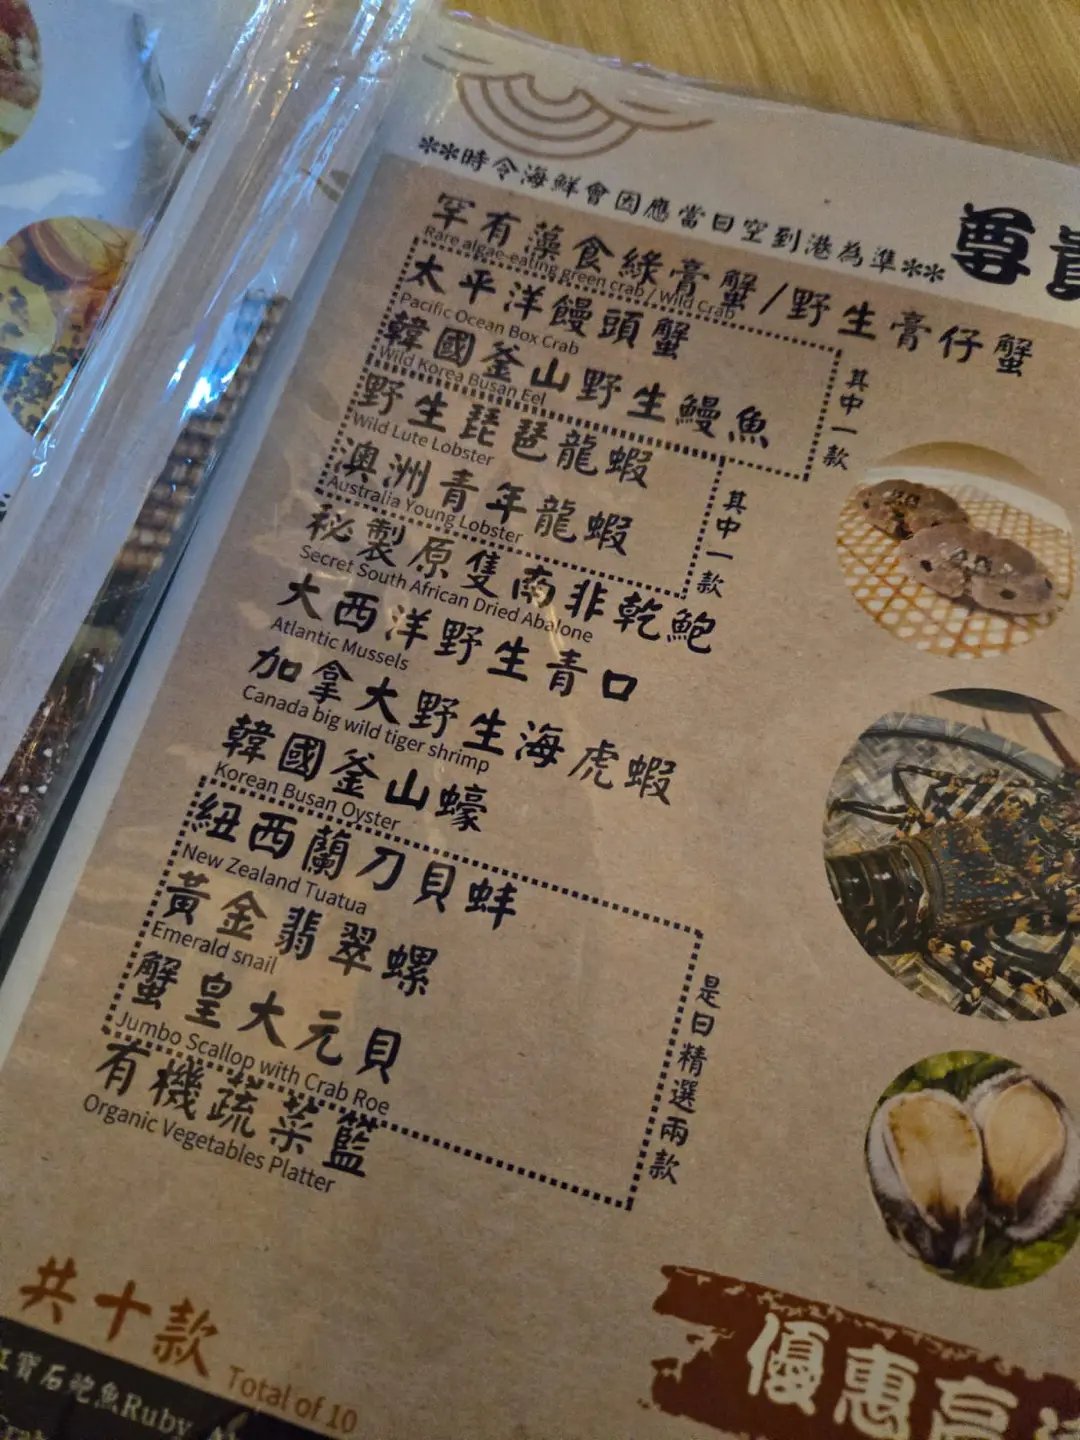 **時令海鮮會因應當日空到港為準**
尊貴
罕有藻食綠膏蟹/野生膏仔蟹
Rare algae-eating green crab / Wild Crab
太平洋饅頭蟹
Pacific Ocean Box Crab
韓國釜山野生鰻魚
Wild Korea Busan Eel
其中一款
野生琵琶龍蝦
Wild Lute Lobster
澳洲青年龍蝦
Australia Young Lobster
其中一款
秘製原隻南非乾鮑
Secret South African Dried Abalone
大西洋野生青口
Atlantic Mussels
加拿大野生海虎蝦
Canada big wild tiger shrimp
韓國釜山蠔
Korean Busan Oyster
紐西蘭刀貝蚌
New Zealand Tuatua
黃金翡翠螺
Emerald snail
蟹皇大元貝
Jumbo Scallop with Crab Roe
是日精選兩款
有機蔬菜籃
Organic Vegetables Platter
共十款 Total of 10
優惠
紅寶石鮑魚Ruby